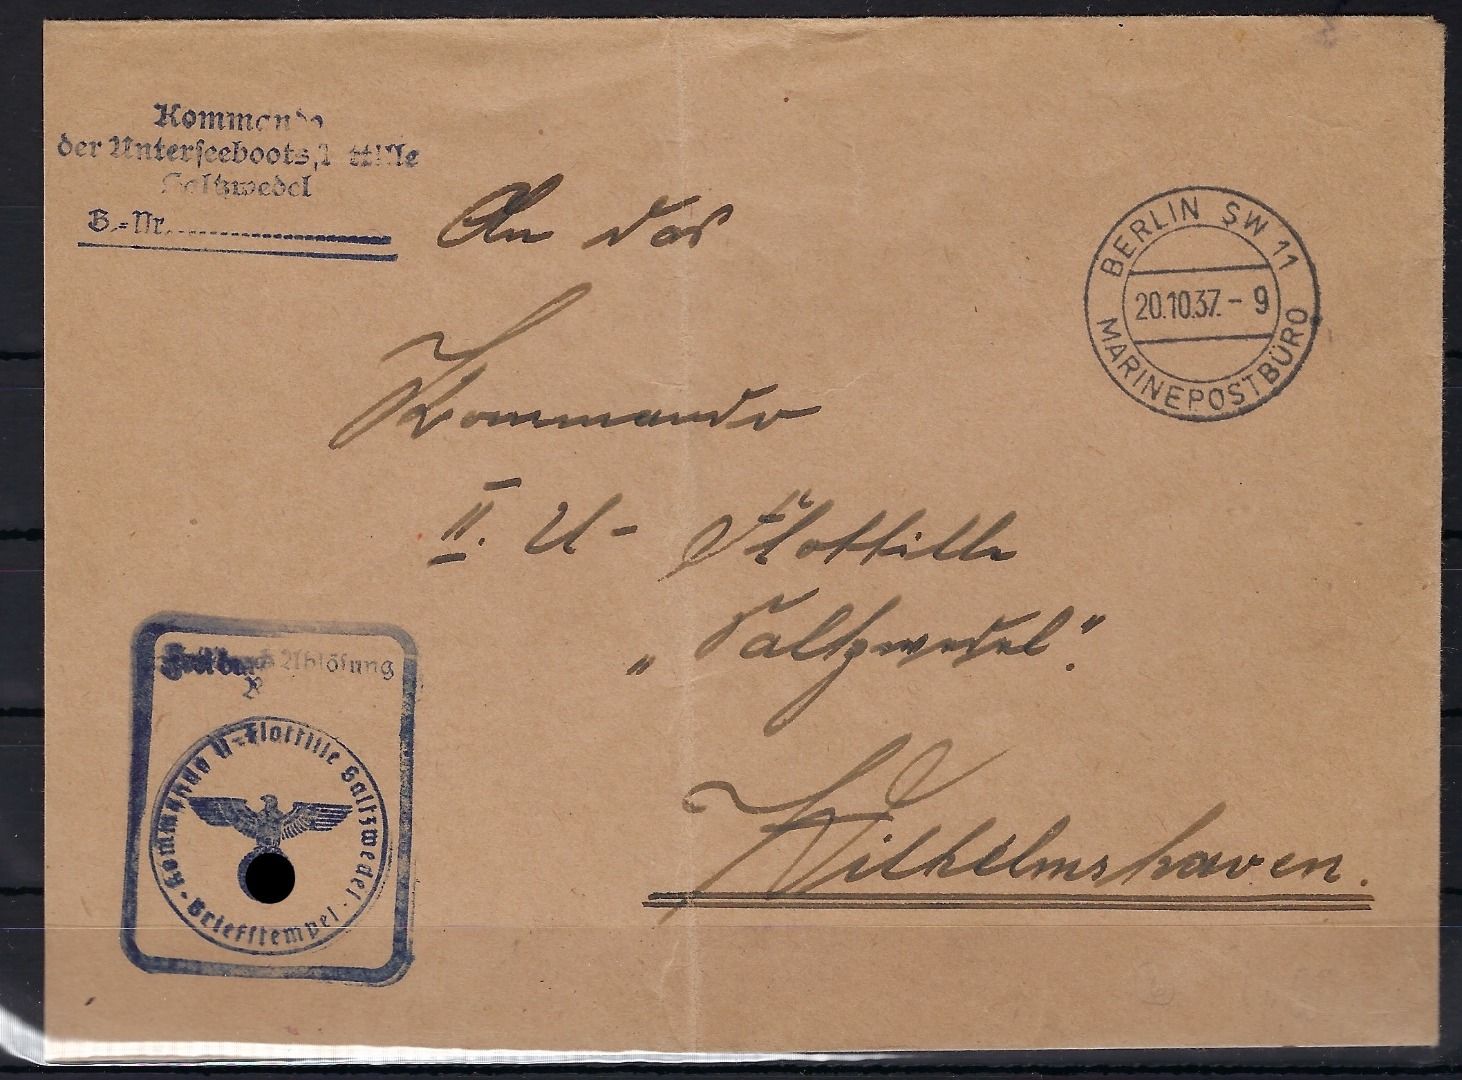 Kommando
der Unterseebootsflottille
Saltzwedel
B.-Nr.
BERLIN SW 11
20.10.37.- 9
MARINEPOSTBÜRO
An das
Kommando
II. U- Flottille
„Saltzwedel".
Wilhelmshaven.
Frei durch Ablösung
Kommando U-Flottille Saltzwedel
- Briefstempel -